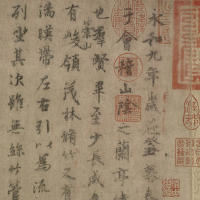 永和九年歲在癸丑暮
于會稽山陰之蘭亭
也羣賢畢至少長咸
有崇山峻領茂林脩竹又有
湍暎帶左右引以為流
列坐其次雖無絲竹管